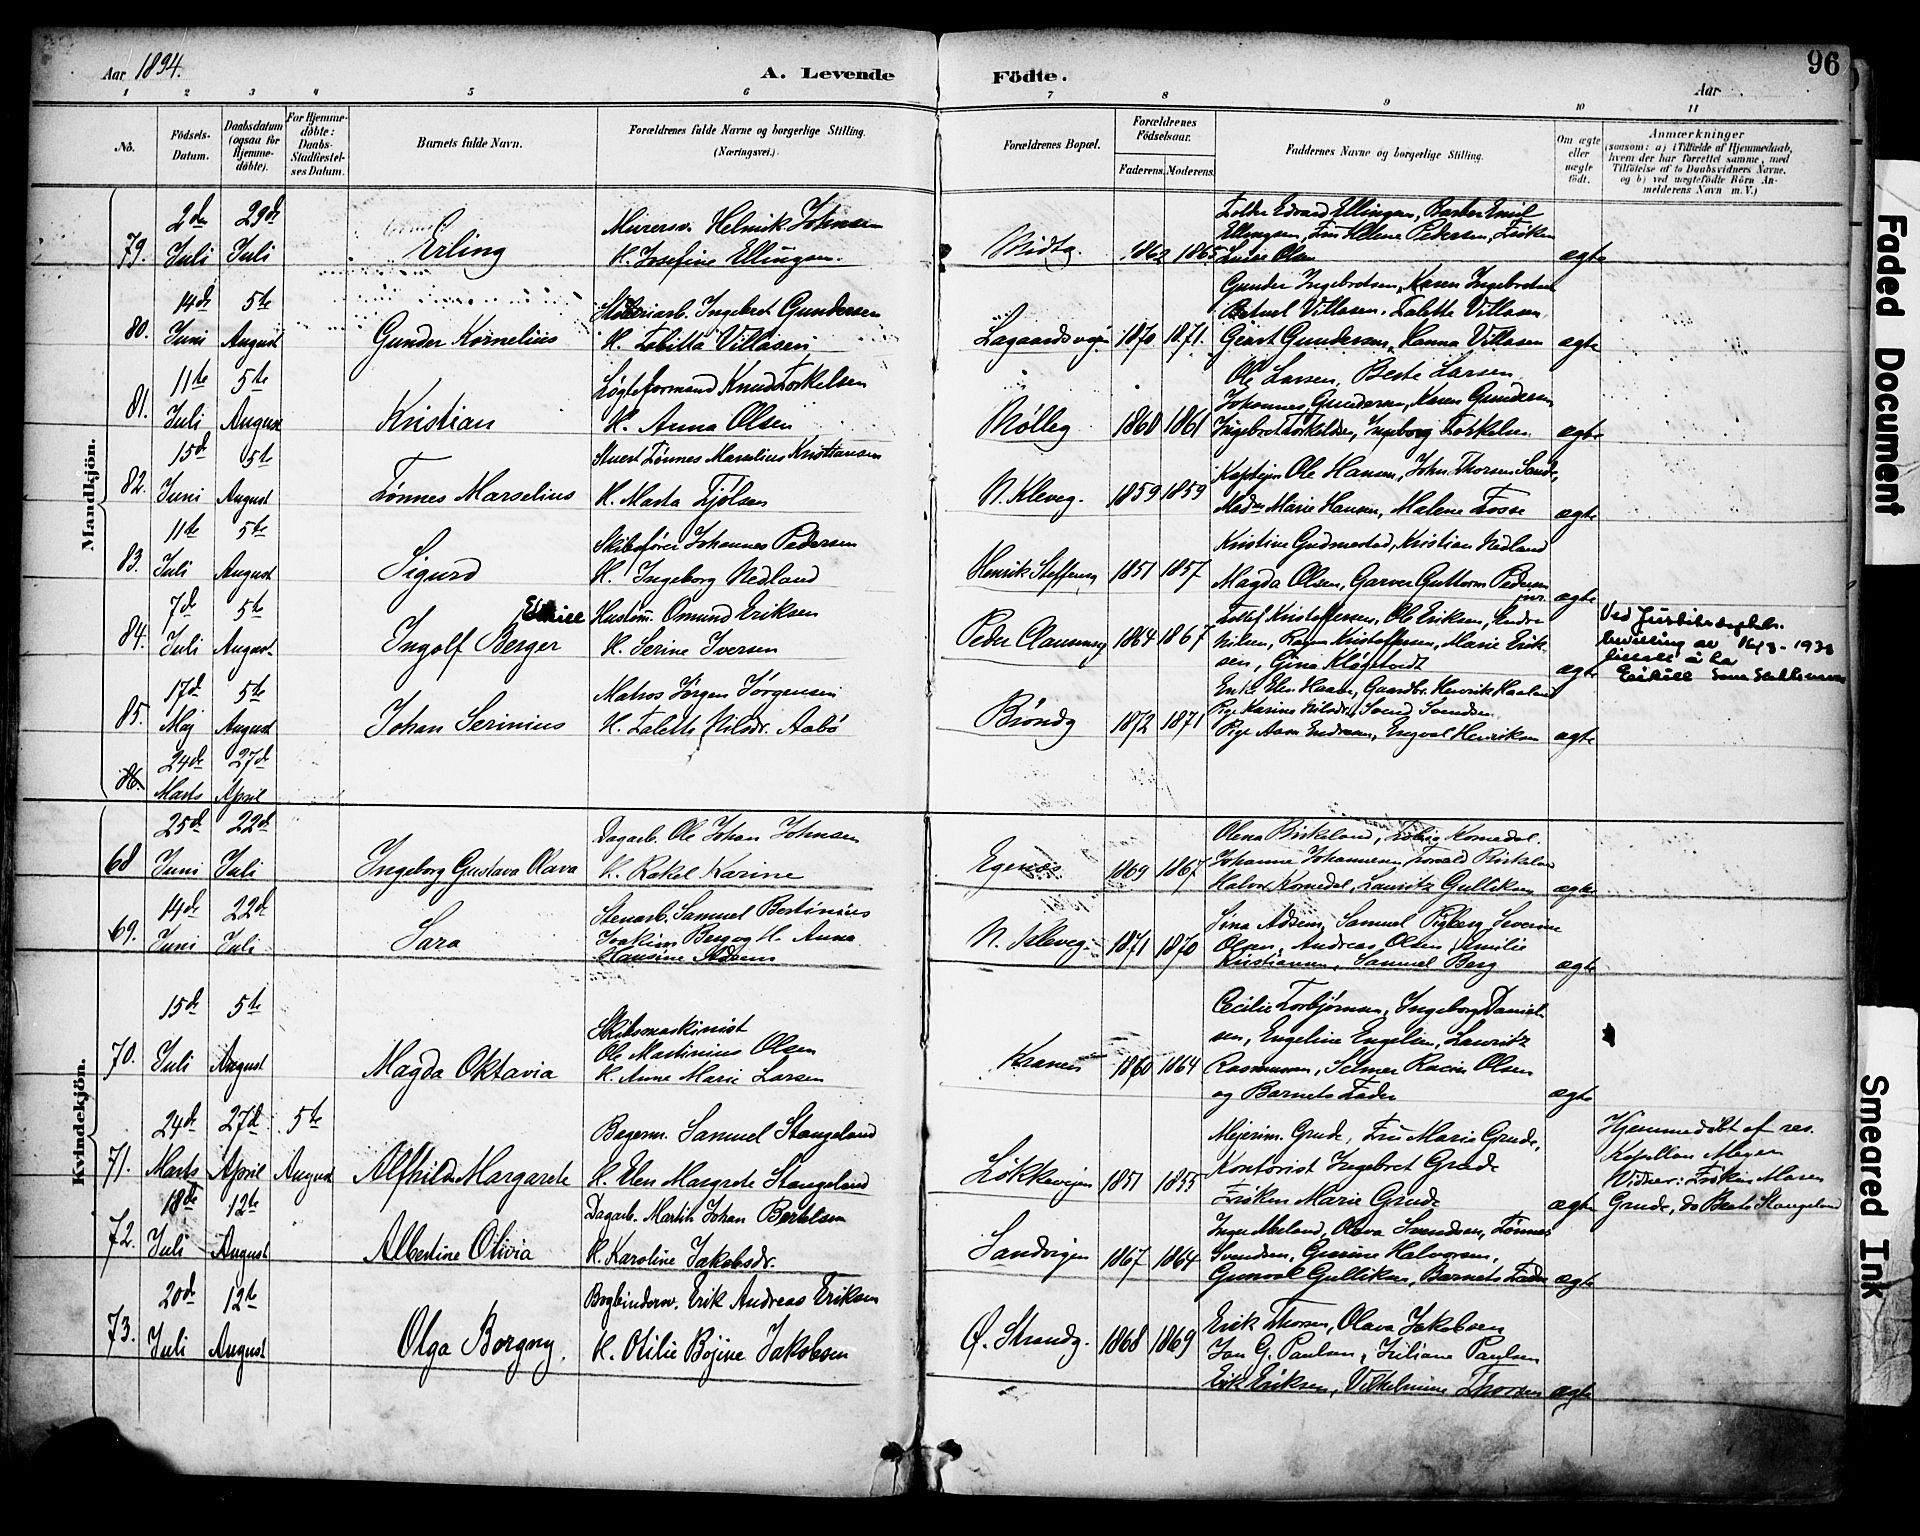 Aar 1894.
A. Levende Födte.
Aar
96
1 2 3 4 5 6 7 8 9 10 11
Nö.
Födsels-Datum.
Daabsdatum (ogsaa for Hjemme-döbte).
For Hjemme-döbte: Daabs-Stadfæstel-ses Datum.
Barnets fulde Navn.
Forældrenes fulde Navne og borgerlige Stilling. (Næringsvei.)
Forældrenes Bopæl.
Forældrenes Födselsaar.
Faderens. Moderens.
Faddernes Navne og borgerlige Stilling.
Om ægte eller uægte födt.
Anmærkninger
(saasom: a) i Tilfælde af Hjemmedaab, hvem der har forrettet samme, med Tilföielse af to Daabsvidners Navne. og b) ved uægtefödte Börn An-melderens Navn m. V.)
Mandkjön.
79. 2de Juli 29de Juli
Erling
Murersv. Helmik Johnsen
H. Josefine Ellingsen.
Midtg. 1862 1865
Edvard Ellingsen, Barber Emil
Ellingsen, Fru Helene Pedersen, Frøken
Olsen
ægte
80. 14de Juni 5te August
Gunder Kornelius
Ingebret Gundersen
H. Tobitta Villasen
Lagaardsvejen 1870 1871.
Gunder Ingebretsen, Karen Ingebretsen
Villasen. Talette Villasen
Geart Gundersen, Hanna Villasen
ægte
81. 11te Juli 5te August
Kristian
Løgteformand Knud Torkelsen
H. Anna Olsen
Mølleg 1860 1861
Ole Larsen, Berte Larsen
Johannes Gundersen, Karen Gundersen
Ingebret Torkildsen, Ingeborg Torkelsen
ægte
82. 15de Juni 5te August
Tønnes Marselius
Stuert Tønnes Marselius Kristiansen
H. Marta Fjølsen
N. Kleveg. 1859 1859
Kaptejn Ole Hansen, John Thorsen Sande,
Marie Hansen, Malene Fosse
ægte
83. 11te Juli 5te August
Sigurd
Skibsfører Johannes Pedersen
H. Ingeborg Nedland
Henrik Steffensg 1851 1857
Kristine Gudmestad, Kristian Nedland
Magda Olsen, Garver Guttorm Pedersen
jnr. ægte
84. 7de Juli 5te August
Eskill
Ingolf Berger
Hustøm. Osmund Eriksen
H. Serine Iversen
Peder Clausensg 1864 1867
Kristoffersen, Ole Eriksen, Sendre
Nilsen, Kristoffersen, Marie Erik-
sen, Gina Kløgetvedt
ægte
Ved Justitsdeptets.
bevilling av 16/3-1938
tillatt å ha
Eskill som slektsnavn
85. 17de Maj 5te August
Johan Serinius
Matros Jørgen Jørgensen
H. Talette Nilsdr. Aabø
Brøndg 1872 1871
Enke Elen Haave, Gaardbr. Henrik Haaland
Pige Karine Nilsdr., Svend Svendsen
Pige Aase Endresen, Engval Henriksen
ægte
86. 24de Marts 27de April
Kvindekjön.
68 25de Juni 22de Juli
Ingeborg Gustava Olava
Dagarb. Ole Johan Johnsen
H. Rakel Karine
Egenæs 1869 1867
Olena Birkeland, Komedal.
Johanne Johannesen, Torvald Birkeland
Halvor Komedal, Lauritz Gulliksen
ægte
69. 14de Juni 22de Juli
Sara
Stenarb. Samuel Bertinius
Joakim Berg og H. Anna
Hansine Adsens
N. Kleveg. 1871 1870
Sina Adsen, Samuel Severine
Olsen, Andreas Olsen, Amilie
Kristiansen, Samuel Berg
ægte
70. 15de Juli 5te August
Magda Oktavia
Skibsmaskinist
Ole Martinius Olsen
H. Anne Marie Larsen
Kranen 1860 1864
Cecilie Torbjørnsen, Ingeborg Daniel-
sen, Engeline Engelsen, Lauritz
Rasmussen, Selmer Olsen
og Barnets Fader
ægte
71. 24de Marts 27de April 5te August
Alfhilda Margarete
Bagerm. Samuel Stangeland
H. Elen Margrete Stangeland
Løkkevejen 1851 1855
Mejerim. Grude, Fru Marie Grude,
Kontorist Ingebret Grude
Frøken Marie Grude
ægte
Hjemmedøbt af res.
Kapellan Meyer
Vidner: Frøken Maren
Grude, do Berte Stangeland
72. 18de Juli 12te August
Albertine Olivia
Dagarb. Martin Johan Bertelsen
H. Karoline Jakobsdr.
Sandvigen 1867 1864
Inger Abeland, Olava Svendsen, Tønnes
Svendsen, Gurine Halvorsen,
Gunval Gulliksen, Barnets Fader
ægte
73. 20de Juli 12te August
Olga Borgny.
Bogbindersv. Erik Andreas Eriksen
H. Otilie Bojine Jakobsen
Ø. Strandg. 1868 1869
Erik Thorsen, Olava Jakobsen
Jan G. Paulsen, Juliane Paulsen
Erik Eriksen, Vilhelmine Thorsen
ægte
Faded Document
Smeared Ink